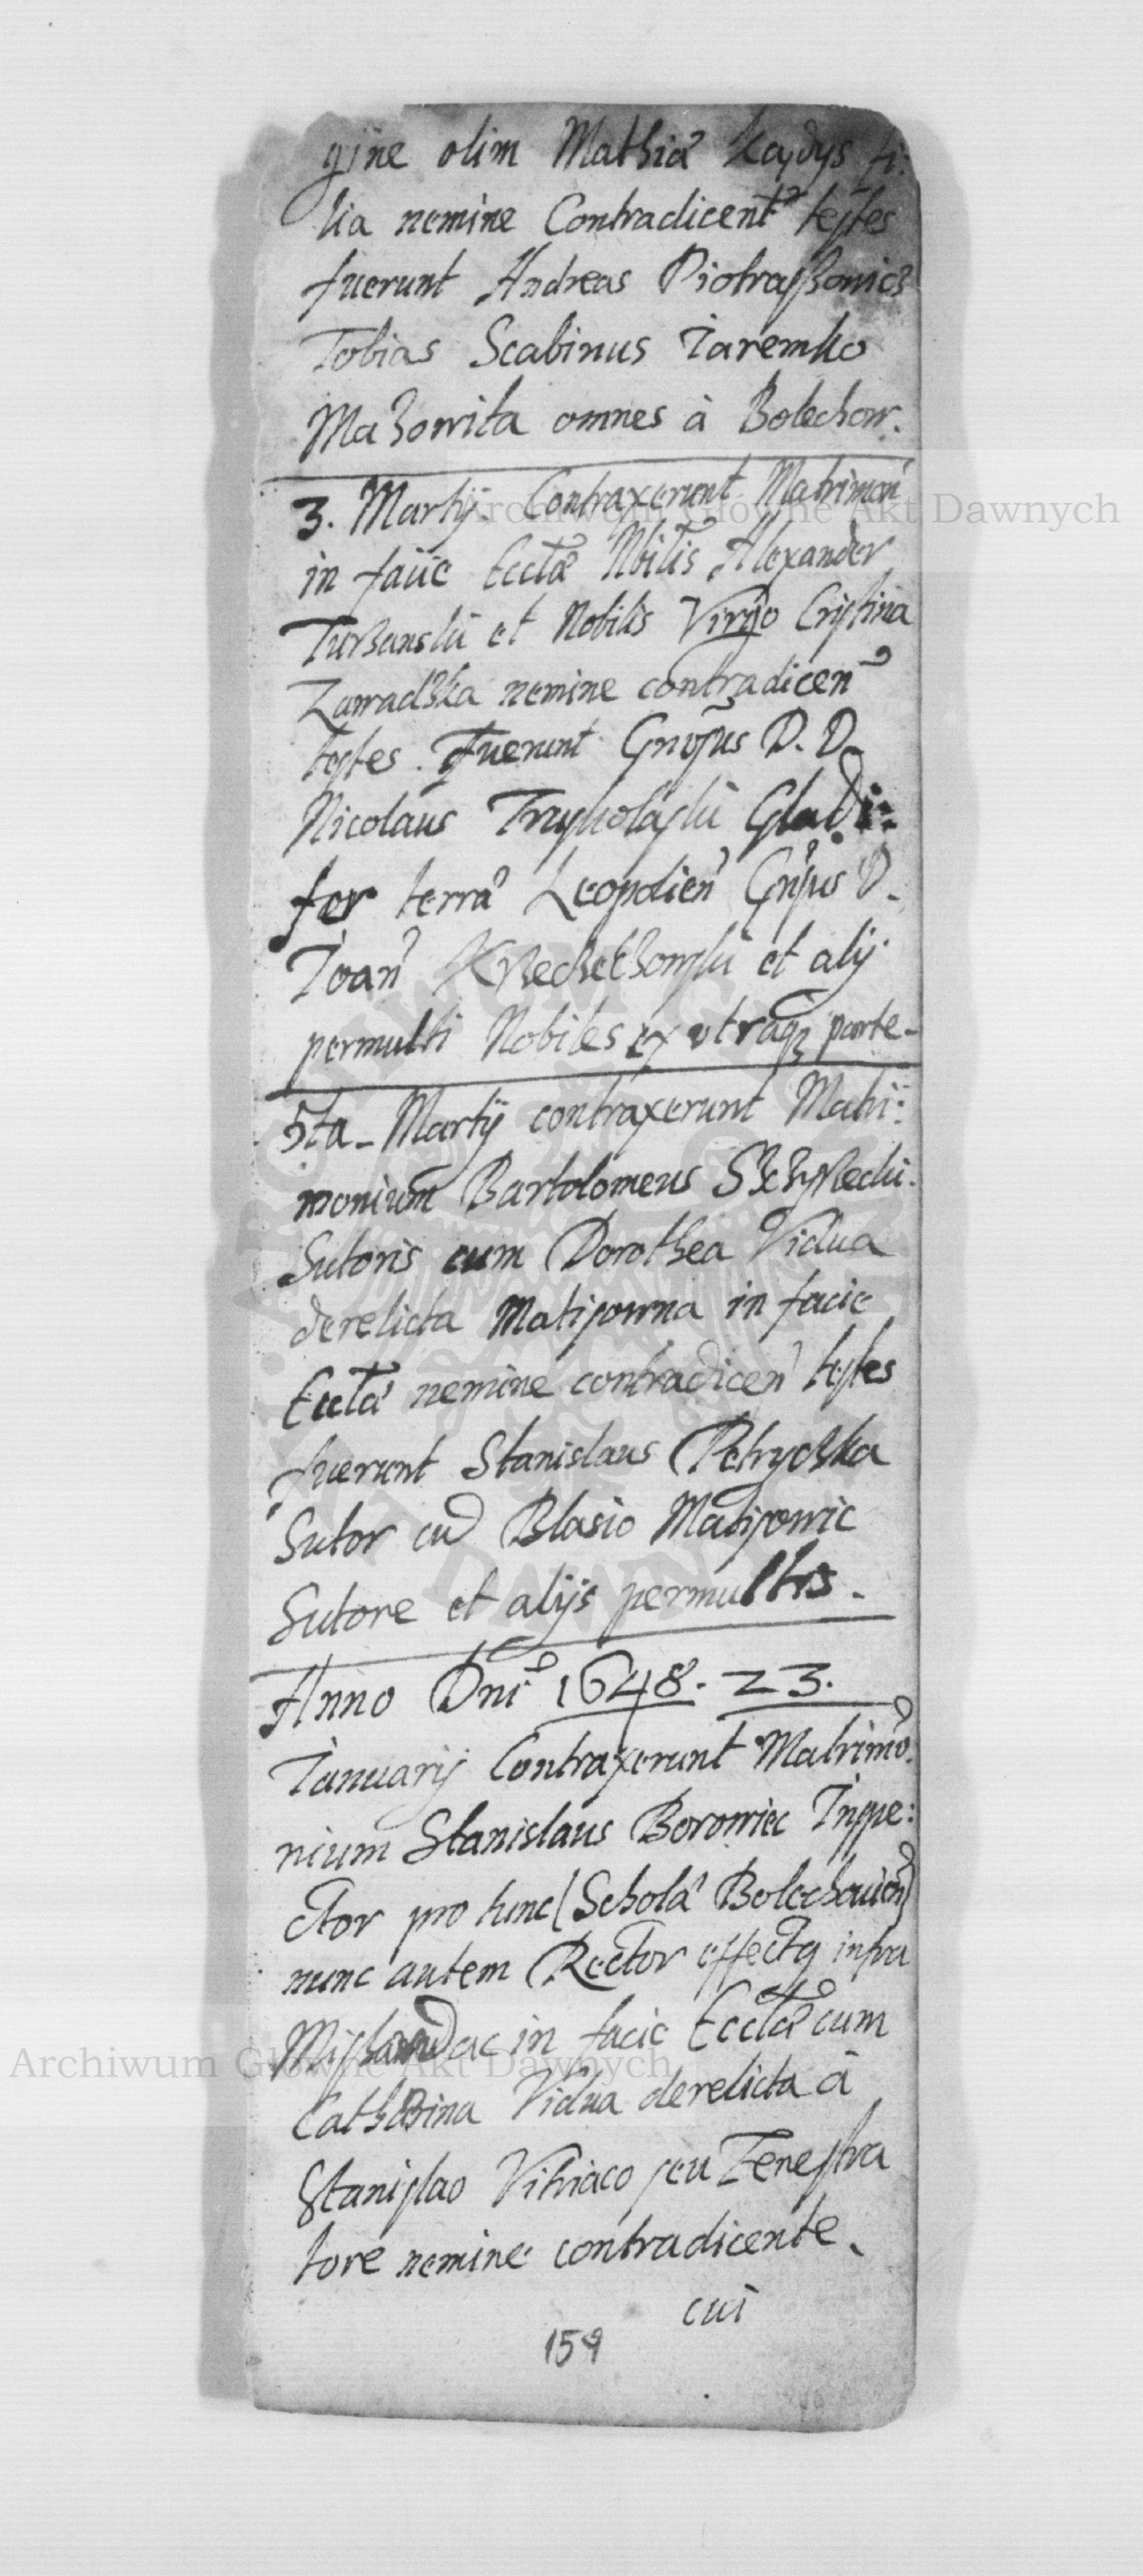 gine olim Mathiæ Kaydys fi:
lia nemine Contradicent testes
fuerunt Andreas Piotraszowicz
Tobias Scabinus Jaremko
Mazowita omnes à Bolechow.
3. Martij Contraxerunt Matrimon
in facie Eccłæ Nbilis Alexander
et Nobilis Virgo Cristina
Zawadzka nemine contradicen
testes. fuerunt Gnosus D. D.
Nicolaus Trypolski Gladi:
fer terræ Leopolien Gnosus D.
Joan et alij
permulti Nobiles ex utraqz parte-
5ta- Martij contraxerunt Matri:
monium Bartolomeus
Sutoris cum Dorothea Vidua
derelicta Matisowna in facie
Eccłæ nemine contradicen testes
fuerunt Stanislaus Petryczka
Sutor cu Blasio Matisowic
Sutore et alijs permultis.
Anno Dni 1648. 23.
Januarij Contraxerunt Matrimo.
nium Stanislaus Borowiec Inspe:
ctor pro tunc (Scholæ Bolechouien)
nunc autem Rector effectq infra
in facie Eccłæ cum
Catharina Vidua derelicta à
Stanislao Vitriaco seu Fenestra
tore nemine contradicente.
cui
159
Archiwum Główne Akt Dawnych
Archiwum Główne Akt Dawnych